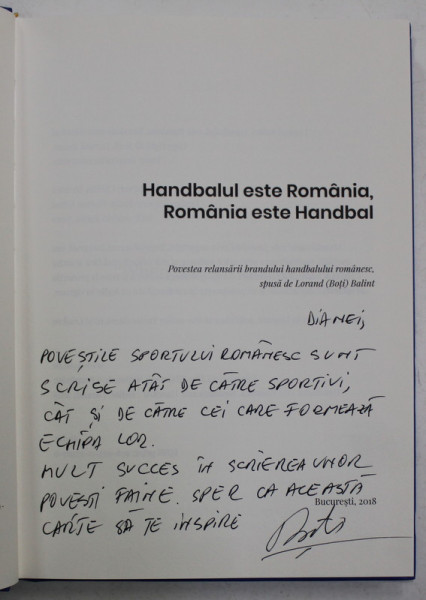 Handbalul este România,
România este Handbal
Povestea relansării brandului handbalului românesc,
spusă de Lorand (Boți) Balint
DIANEI,
POVEȘTILE SPORTULUI ROMÂNESC SUNT
SCRISE ATÂT DE CĂTRE SPORTIVI,
CÂT ȘI DE CĂTRE CEI CARE FORMEAZĂ
ECHIPA LOR.
MULT SUCCES ÎN SCRIEREA UNOR
POVEȘTI FAINE. SPER CA ACEASTĂ
București, 2018
CARTE SĂ TE INSPIRE
Boți